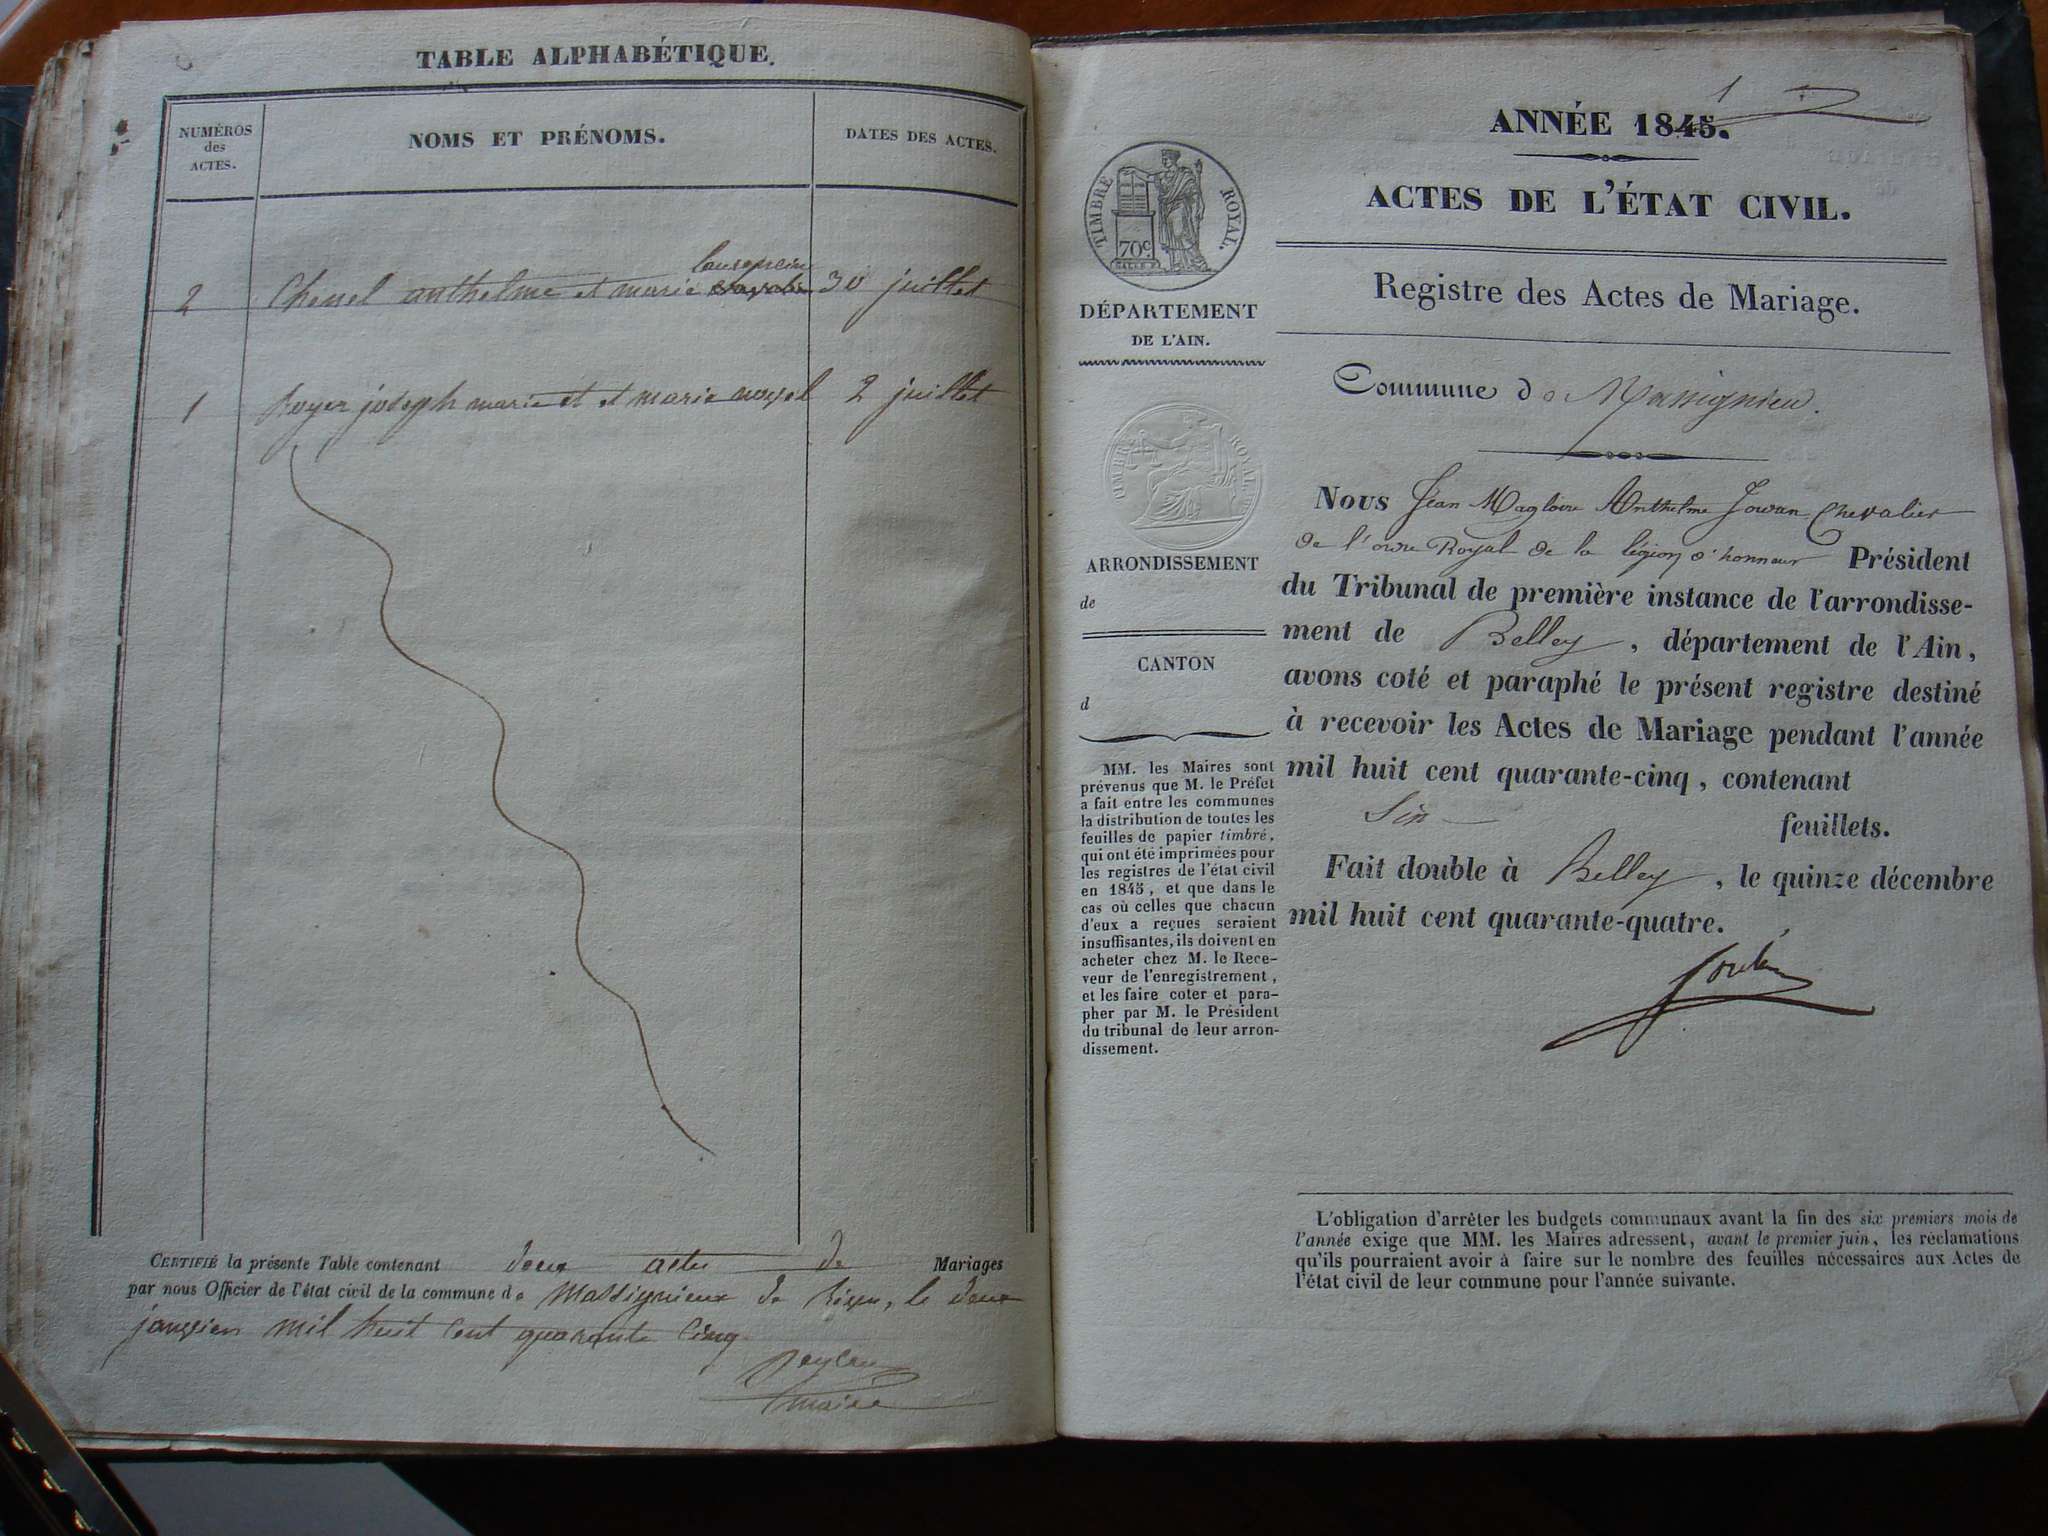 TABLE ALPHABÉTIQUE.
NUMÉROS
des
ACTES.
NOMS ET PRÉNOMS.
DATES DES ACTES.
2 Chenel anthelme et marie 30 juillet
1 Royer joseph marie et et marie noyel 2 juillet
CERTIFIÉ la présente Table contenant deux actes de Mariages
par nous Officier de l'état civil de la commune de Massignieux de Rives, le deux
janvier mil huit cent quarante cinq
maire
1
ANNÉE 1845.
ACTES DE L'ÉTAT CIVIL.
Registre des Actes de Mariage.
Commune de Massignieu.
TIMBRE ROYAL.
70c
DÉPARTEMENT
DE L'AIN.
TIMBRE ROYAL
ARRONDISSEMENT
de
CANTON
d
MM. les Maires sont
prévenus que M. le Préfet
a fait entre les communes
la distribution de toutes les
feuilles de papier timbré,
qui ont été imprimées pour
les registres de l'état civil
en 1845, et que dans le
cas où celles que chacun
d'eux a reçues seraient
insuffisantes, ils doivent en
acheter chez M. le Rece-
veur de l'enregistrement,
et les faire coter et para-
pher par M. le Président
du tribunal de leur arron-
dissement.
Nous Jean Magloire Anthelme Chevalier
de l'ordre Royal de la légion d'honneur Président
du Tribunal de première instance de l'arrondisse-
ment de Belley, département de l'Ain,
avons coté et paraphé le présent registre destiné
à recevoir les Actes de Mariage pendant l'année
mil huit cent quarante-cinq, contenant
Six feuillets.
Fait double à Belley, le quinze décembre
mil huit cent quarante-quatre.
L'obligation d'arrêter les budgets communaux avant la fin des six premiers mois de
l'année exige que MM. les Maires adressent, avant le premier juin, les réclamations
qu'ils pourraient avoir à faire sur le nombre des feuilles nécessaires aux Actes de
l'état civil de leur commune pour l'année suivante.